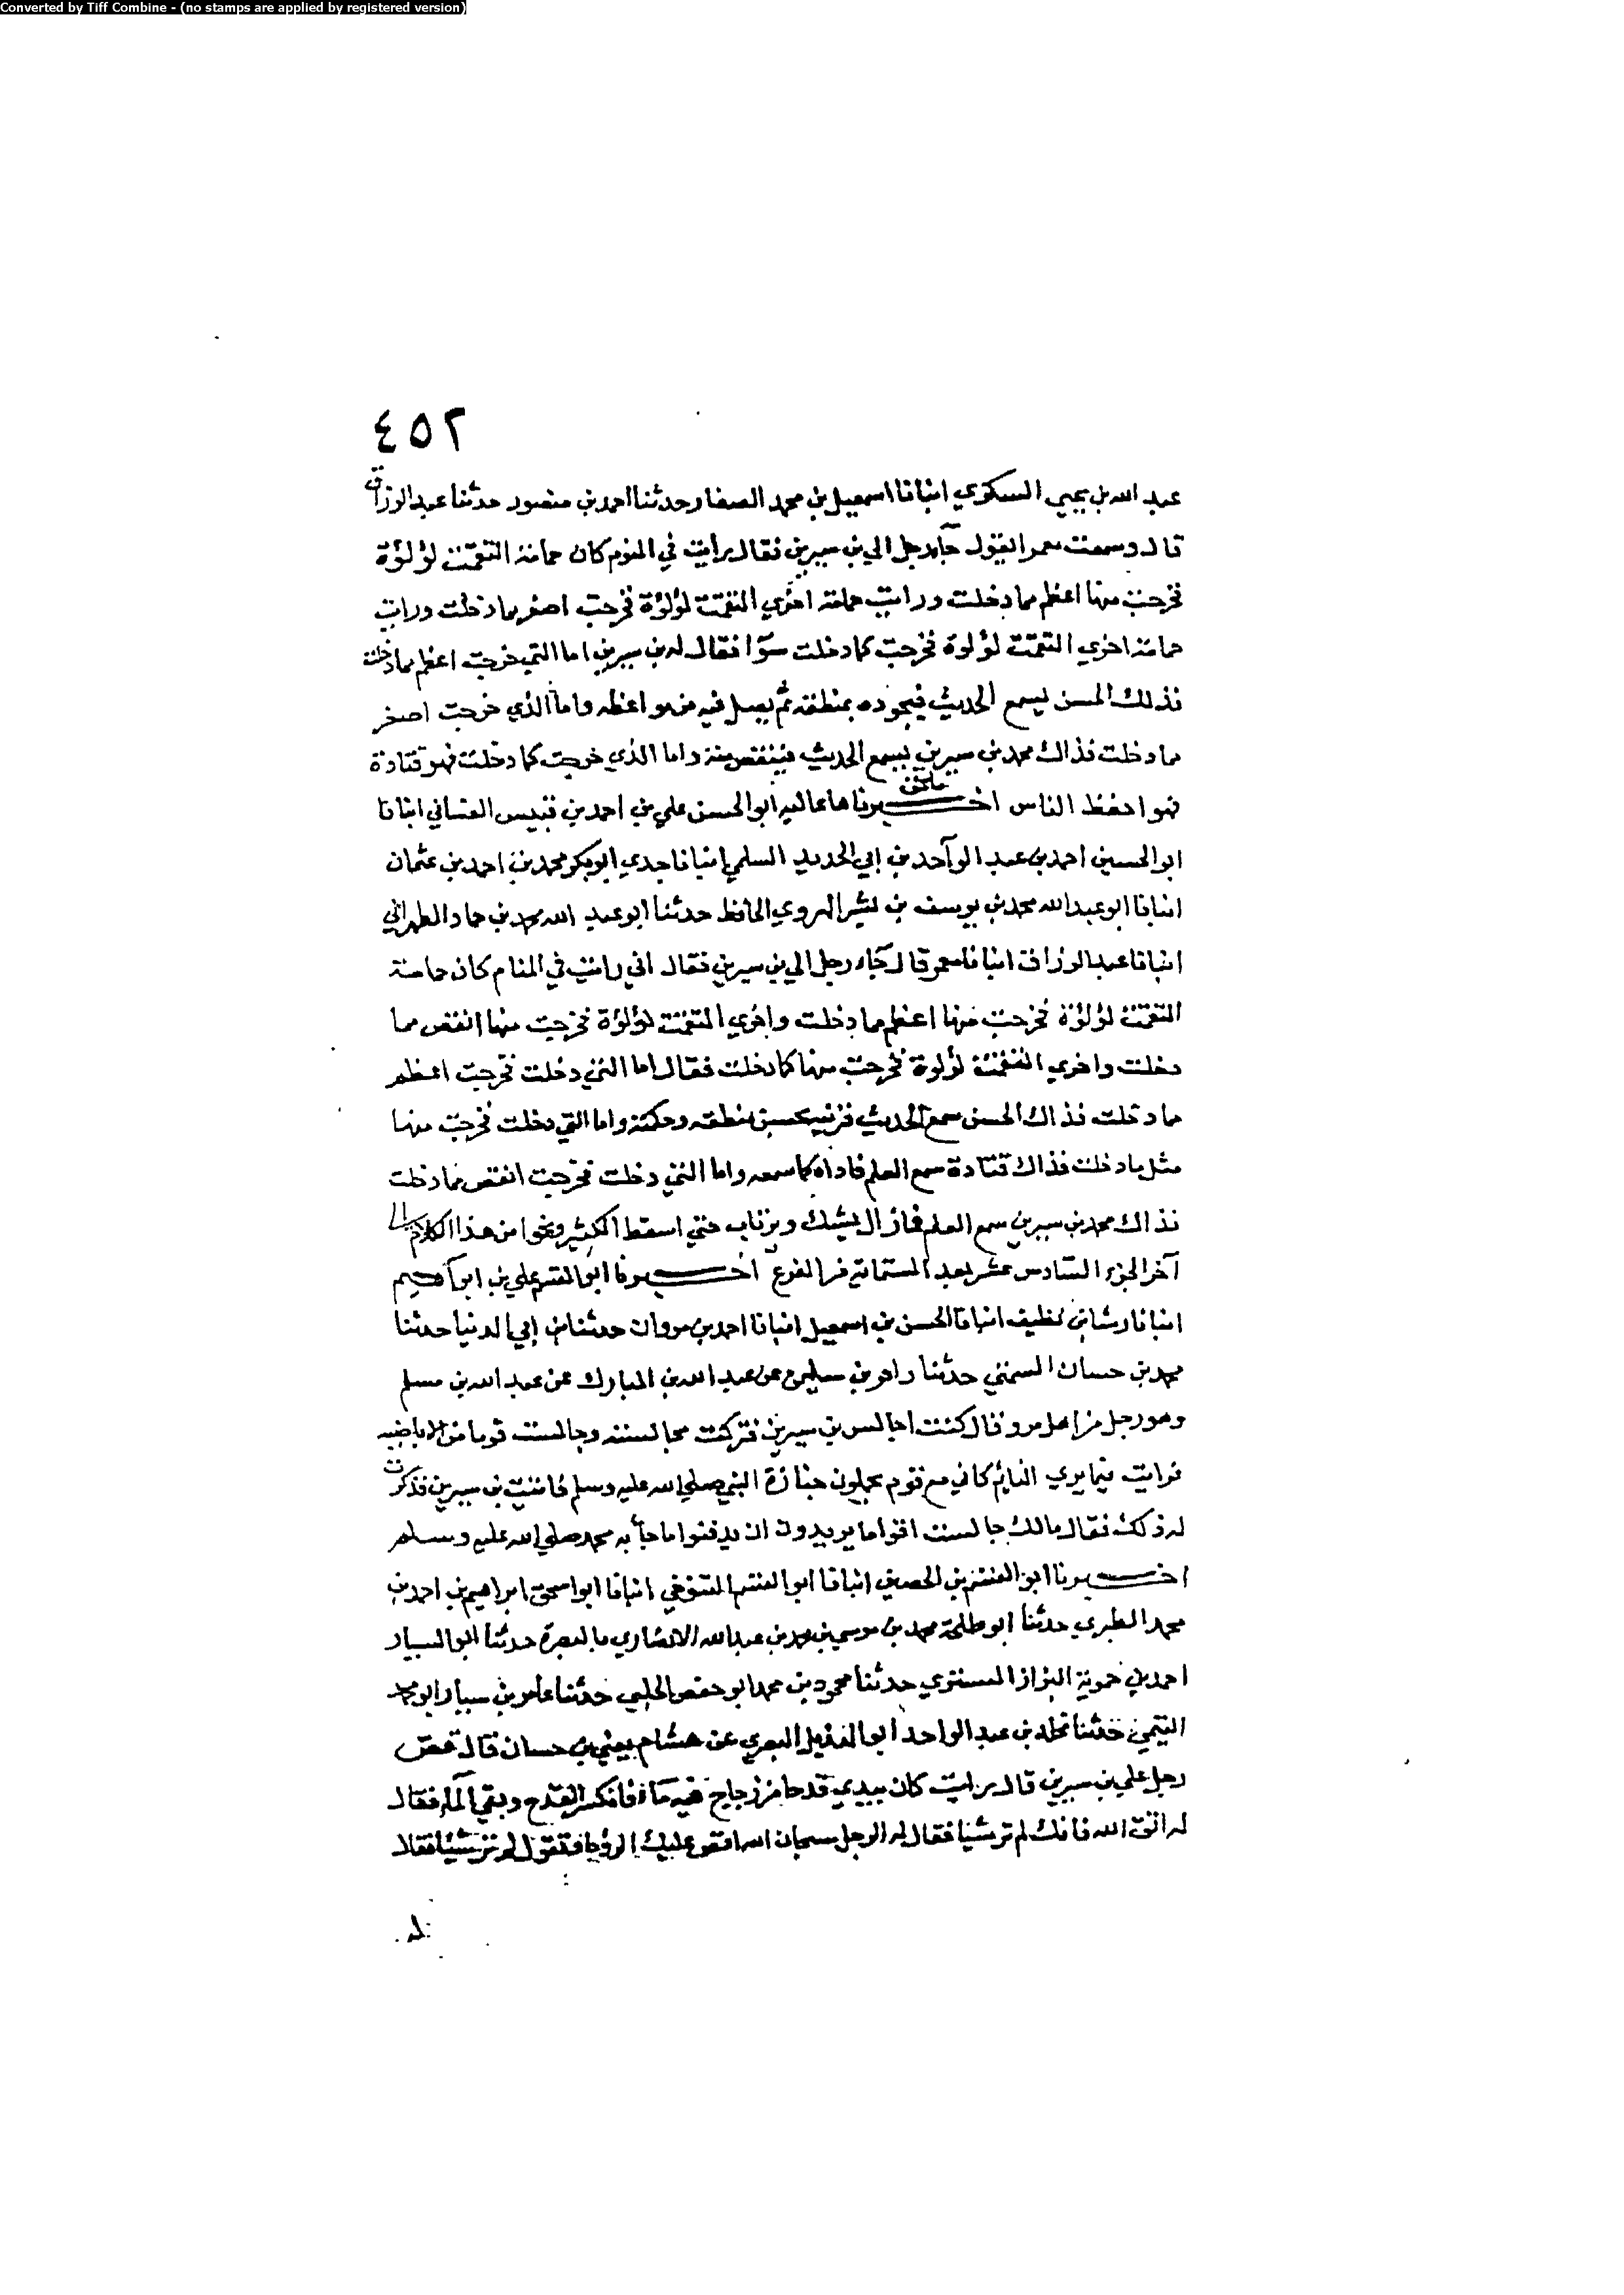 Converted by Tiff Combine - (no stamps are applied by registered version)
٤٥٢
عبد الله بن يحيي السكري انبانا اسمعيل بن محمد الصفار حدثنا احمد بن منصور حدثنا عبد الرزاق
قال وسمعت معمرا يقول جآء رجل الي بن سيرين فقال رايت في النوم كان حمامة التقمت لؤلؤة
فخرجت منها اعظم مما دخلت ورايت حمامة اخري التقمت لؤلؤة فخرجت اصغر مما دخلت ورايت
حمامة اخري التقمت لؤلوة فخرجت كما دخلت سوآ فقال له بن سيرين اما التي خرجت اعظم مما دخلت
فذلك الحسن يسمع الحديث فيجوده بمنطقه ثم يصل فيه من مواعظه واما الذي خرجت اصغر
مما دخلت فذاك محمد بن سيرين يسمع الحديث فينقص منه واما الذي خرجت كما دخلت فهو قتادة
فهو احفظ الناس اخبرنا ها عاليه ابو الحسن علي بن احمد بن قبيس الغساني انبانا
ابو الحسين احمد بن عبد الوآحد بن ابي الحديد السلمي انبانا جدي ابو بكر محمد بن احمد بن عثمان
انبانا ابو عبد الله محمد بن يوسف بن بشر الهروي الحافظ حدثنا ابو عبد الله محمد بن حماد الطهراني
انبانا عبد الرزاق انبانا معمر قال جآء رجل الي بن سيرين فقال اني رايت في المنام كان حمامة
التقمت لؤلؤة فخرجت منها اعظم مما دخلت واخري التقمت لؤلؤة فخرجت منها انقص مما
دخلت واخري التقمت لؤلوة فخرجت منها كما دخلت فقال اما التي دخلت فخرجت اعظم
مما دخلت فذاك الحسن سمع الحديث فزينه بحسن منطقه وحكمته واما التي دخلت فخرجت منها
مثل ما دخلت فذاك قتادة سمع العلم فاداه كما سمعه واما التي دخلت فخرجت انقص مما دخلت
فذاك محمد بن سيرين سمع العلم فما زال يشك ويرتاب حتي اسقط الكثير ونحوا من هذا الكلام
آخر الجزء السادس عشر بعد الستمائة من الفرع اخبرنا ابو القسم علي بن ابرآهيم
انبانا رشا بن نظيف انبانا الحسن بن اسمعيل انبانا احمد بن مروان حدثنا بن ابي الدنيا حدثنا
محمد بن حسان السمتي حدثنا زاهر بن سليمن عن عبد الله بن المبارك عن عبد الله بن مسلم
وهو رجل من اهل مرو قال كنت اجالس بن سيرين فتركت مجالسته وجالست قوما من الاباضيه
فرايت فيما يري النايم كاني مع قوم يحملون جنازة النبي صلي الله عليه وسلم فاتيت بن سيرين فذكرت
له ذلك فقال مالك جالست اقواما يريدون ان يدفنوا ما جآ به محمد صلي الله عليه وسلم
اخبرنا ابو القسم بن الحصين انبانا ابو القسم التنوخي انبانا ابو اسحق ابراهيم بن احمد بن
محمد الطبري حدثنا ابو طلحة محمد بن موسي بن محمد بن عبد الله الانصاري بالبصرة حدثنا ابو السيار
احمد بن حموية البزاز التستري حدثنا محمود بن محمد ابو حفص الحلبي حدثنا عامر بن سيار ابو محمد
التيمي حدثنا مخلد بن عبد الواحد ابو الهذيل البصري عن هشام يعني بن حسان قال قص
رجل علي بن سيرين قال رايت كان بيدي قدحا من زجاج فيه مآء فانكسر القدح وبقي المآء فقال
له اتق الله فانك لم تر شيا فقال له الرجل سبحان الله اقص عليك الرؤيا فتقول لم تر شيئا فقال
له